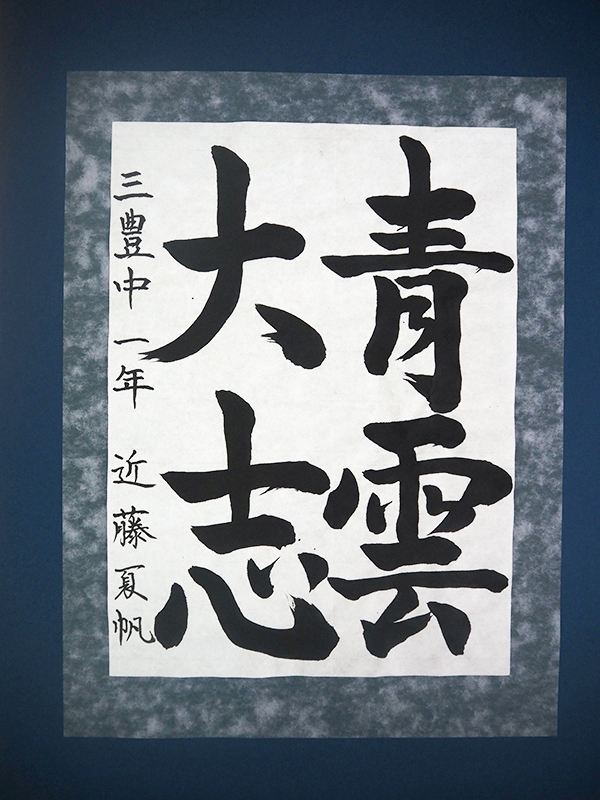 青雲
大志
三豊中一年 近藤夏帆